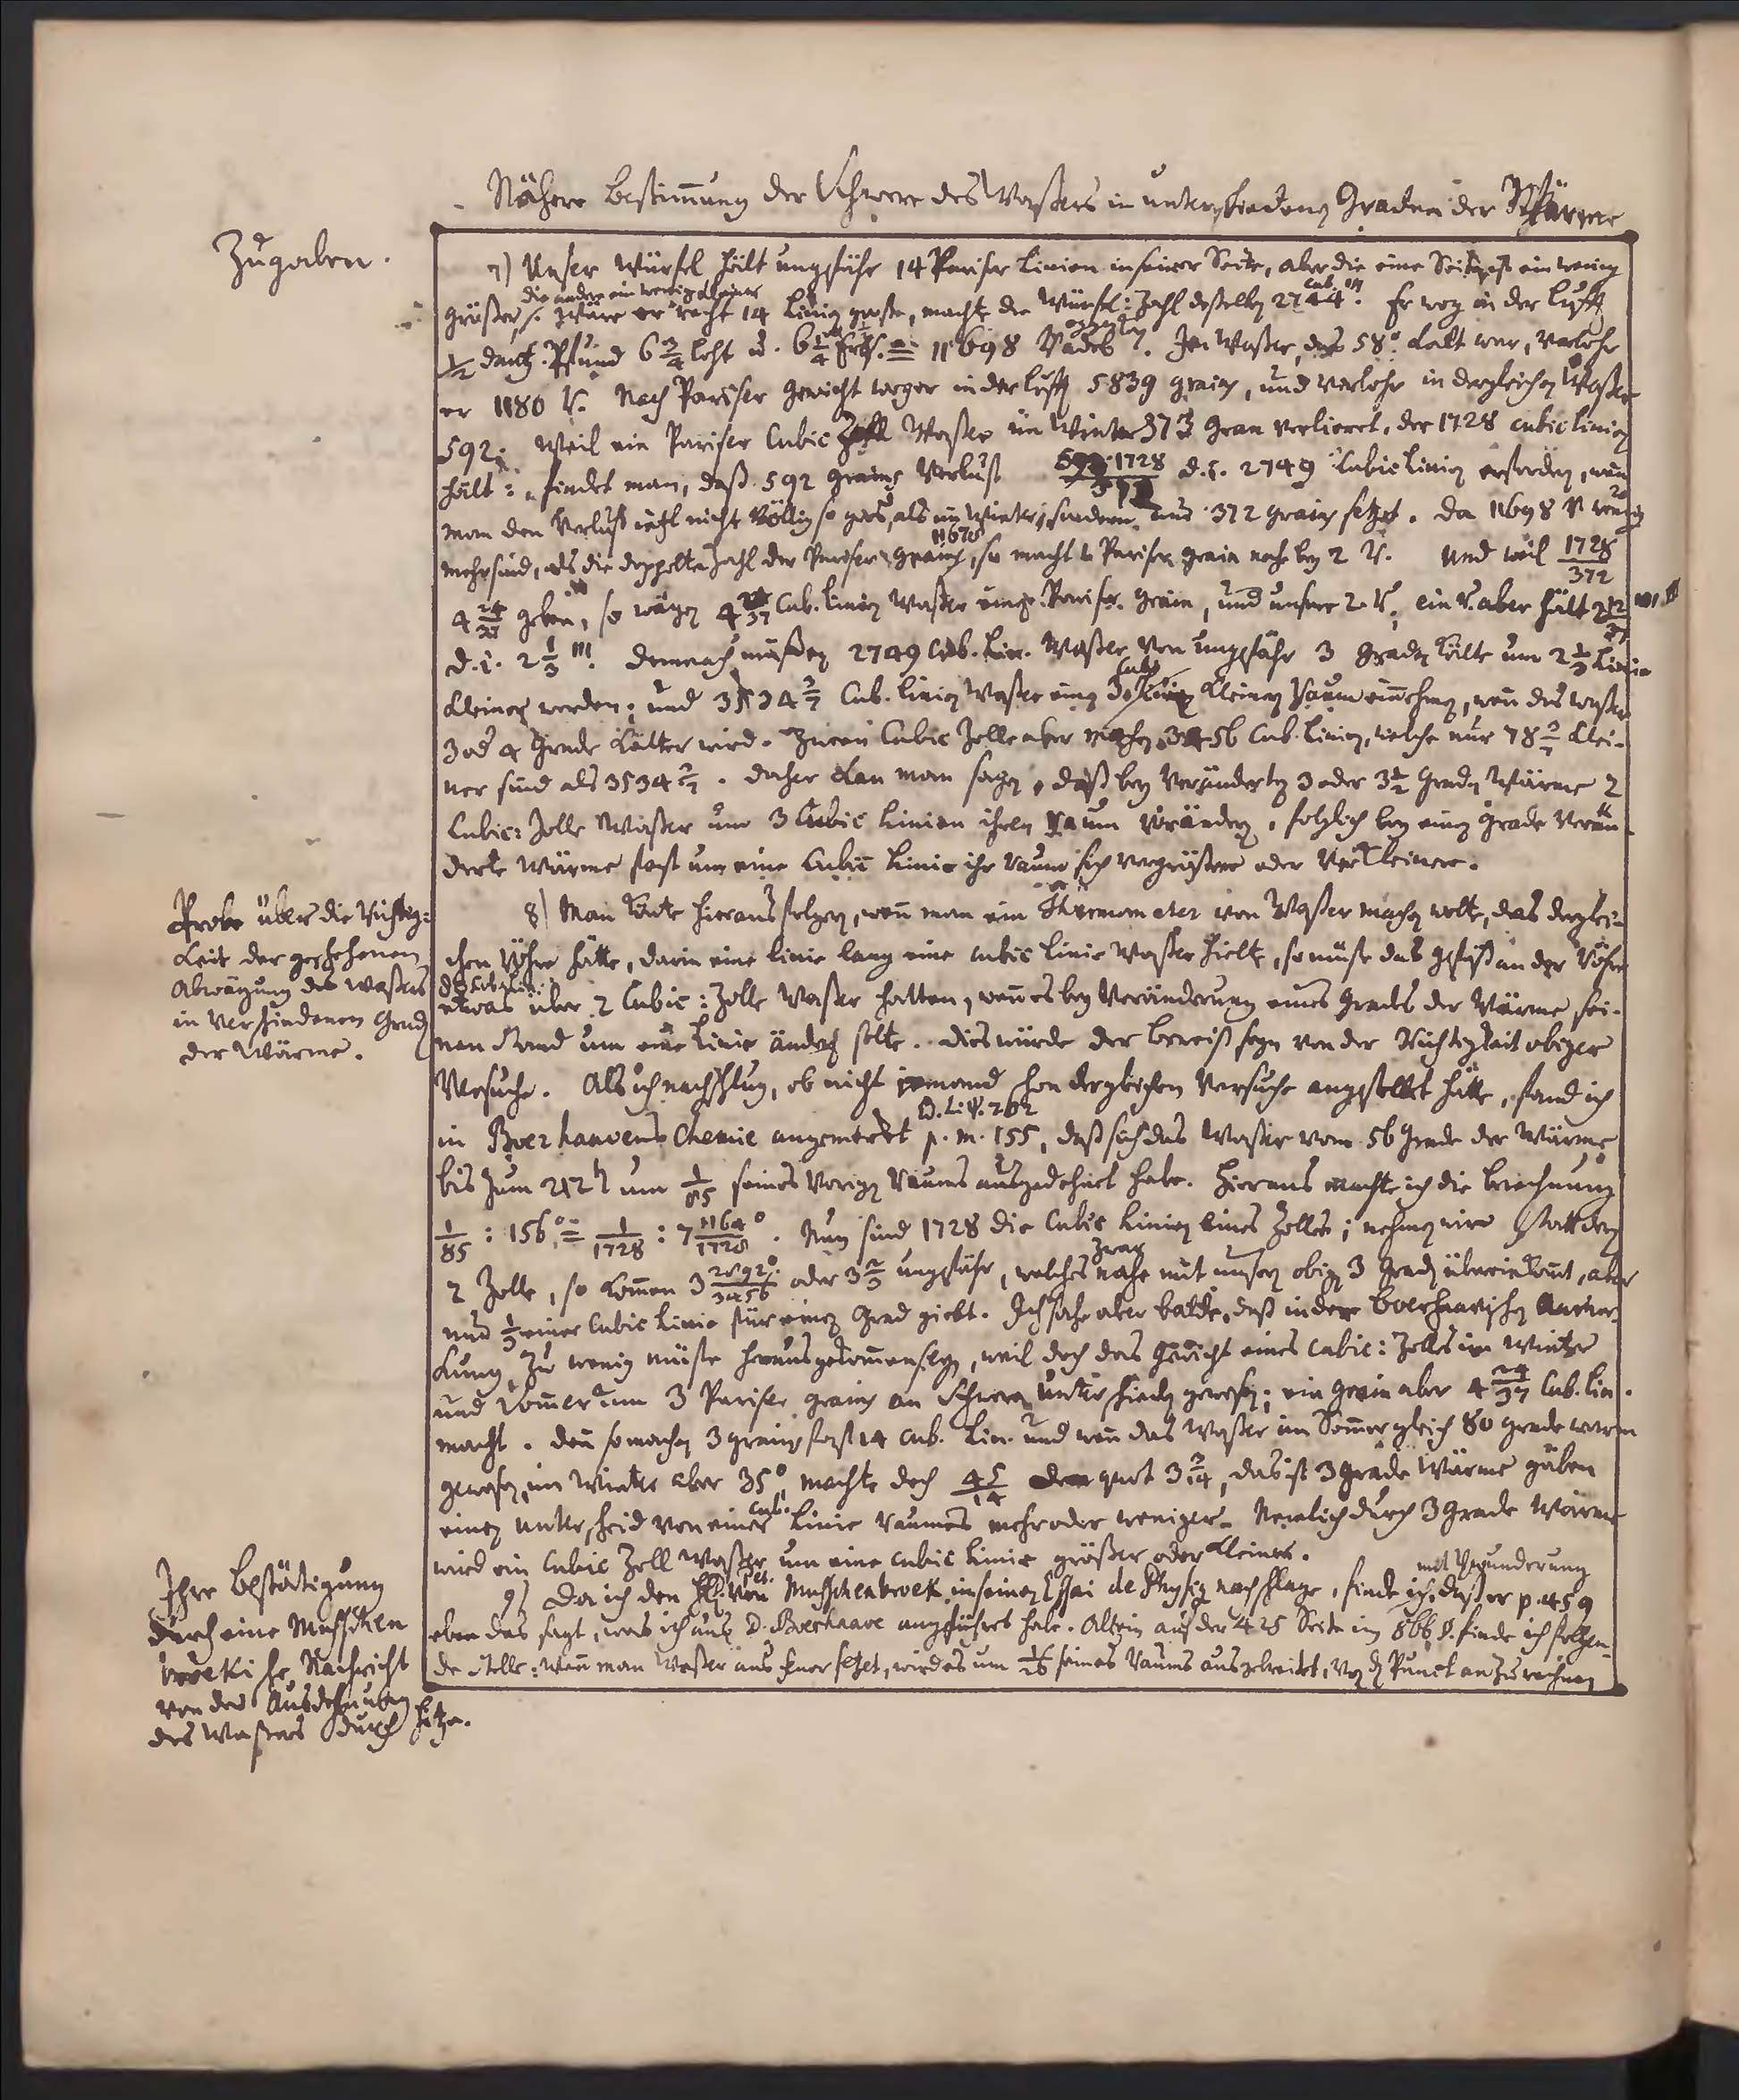 Nähere Bestimmung der Schwere des Waßers in unterschiedenen Graden der Wärme
Zugaben.
7) Unser Würfel hält ungefähr 14 Pariser Linien in seiner Seite, aber die eine Seite ist ein wenig
die andere ein wenig kleiner
größer. Wäre er recht 14 Linien groß, machte die Würfel-Zahl deßelben 2744 cub. ''' Er wog in der Lufft
1/2 dantz. Pfund 6 3/4 Loht u. 6 1/4 = 11698 Im Waßer, das 58° kalt war, verlohr
er 1180 V. Nach Pariser Gewicht wog er in der Lufft 5839 grains, und verlohr in dergleichen Waßer
592. Weil ein Pariser Cubic Zoll Waßer im Winter 373 Gran verlieret, der 1728 cubic Linien
hält: findet man, daß 592 grains Verlust 592.1728 d.i. 2749 Cubic Linien erfordern, wenn
man den Verlust nicht völlig so groß, als im Winter, sondern 372 grains setzet. Da 11698 V wenig
mehr sind, als die doppelte Zahl der Pariser grains 11678, so macht 1 Pariser grain nahe bey 2 V. Und weil 1728/372
4 24/37 geben, so wägen 4 24/37 Cub. Linien Waßer einen Pariser Grain, und unsere 2 V. ein V. aber hält 2 12/37 '''
d.i. 2 1/3 '''. Demnach müßen 2749 Cub. Lin. Waßer von ungefähr 3 Graden Kälte um 2 1/3 Linie
kleiner werden; und 3534 2/7 Cub. Linien Waßer einen 3 Cubic Linien kleinern Raum einnehmen, wenn das Waßer
3 od. 4 Grade kälter wird. Zween Cubic Zolle aber machen 3456 Cub. Linien, welche nur 78 2/7 klei-
ner sind als 3534 2/7. Daher kan man sagen, daß bey veränderten 3 oder 3 1/2 Graden Wärme 2
Cubic-Zolle Waßer um 3 Cubic Linien ihren Raum verändern, folglich bey einem Grade verän-
derte Wärme fast um eine Cubic Linie ihr Raum sich vergrößere oder verkleinere.
Probe über die Richtig-
keit der geschehenen
Abwägung des Waßers
in verschiedenen Graden
der Wärme.
8) Man könte hieraus folgern, wenn man ein Thermometer von Waßer machen wolte, das derglei-
chen Röhre hätte, darin eine Linie lang eine cubic Linie Waßer hielte, so müste das Gefäß an der Röhre
etwas über 2 Cubic-Zolle Waßer halten, wenn es bey Veränderung eines Grades der Wärme sei-
nen Stand um eine Linie ändern solte. Dies würde der Beweiß seyn von der Richtigkeit obiger
Versuche. Als ich nachschlug, ob nicht jemand schon dergleichen Versuche angestellet hätte, fand ich
in Boerhaavens Chemie angemerkt p. m. 155, daß sich das Waßer vom 56 Grade der Wärme
bis zum 212ten um 1/85 seines vorigen Raums ausgedehnet habe. Hieraus machte ich die Berechnung
1/85 : 156° = 1/1728 : 7 1164/1728 °. Nun sind 1728 die Cubic Linien eines Zolles; nehmen wir statt deßen
2 Zolle, so kommen 3 2892/3456 ° oder 3 2/3 ungefähr, welches zwar nahe mit unsern obigen 3 Graden übereinkomt, aber
nur 1/3 einer Cubic Linie für einen Grad giebt. Ich sahe aber balde, daß in der Boerhaavischen Anmer-
kung zu wenig müste herausgekommen seyn, weil doch das Gewicht eines Cubic-Zolles im Winter
und Sommer um 3 Pariser grains an Schwere unterschieden gewesen; ein grain aber 4 24/37 Cub. Lin.
macht. Denn so machen 3 grains fast 14 cub. Lin. und wenn das Waßer im Sommer gleich 80 grade warm
gewesen, im Winter aber 35°, machte doch 45/14 den quot 3 3/14, das ist 3 Grade Wärme gäben
einen Unterscheid von einer cub. Linie Raumes mehr oder weniger. Nemlich durch 3 Grade Wärme
wird ein Cubic Zoll Waßer um eine cubic Linie größer oder kleiner.
Ihre Bestätigung
durch eine Musschen
broekische Nachricht
von der Ausdehnung
des Waßers durch Hitze.
9) Da ich den H. Pet. von Musschenbroek in seinem Essai de Physiq nachschlage, finde ich mit Verwunderung, daß er p. 459
eben das sagt, was ich aus D. Boerhaave angeführet habe. Allein auf der 425 Seite im 866 §. finde ich folgen-
de Stelle: Wenn man Waßer ans Feuer setzet, wird es um 1/26 seines Raums ausgebreitet, von dem Punct an zu rechnen